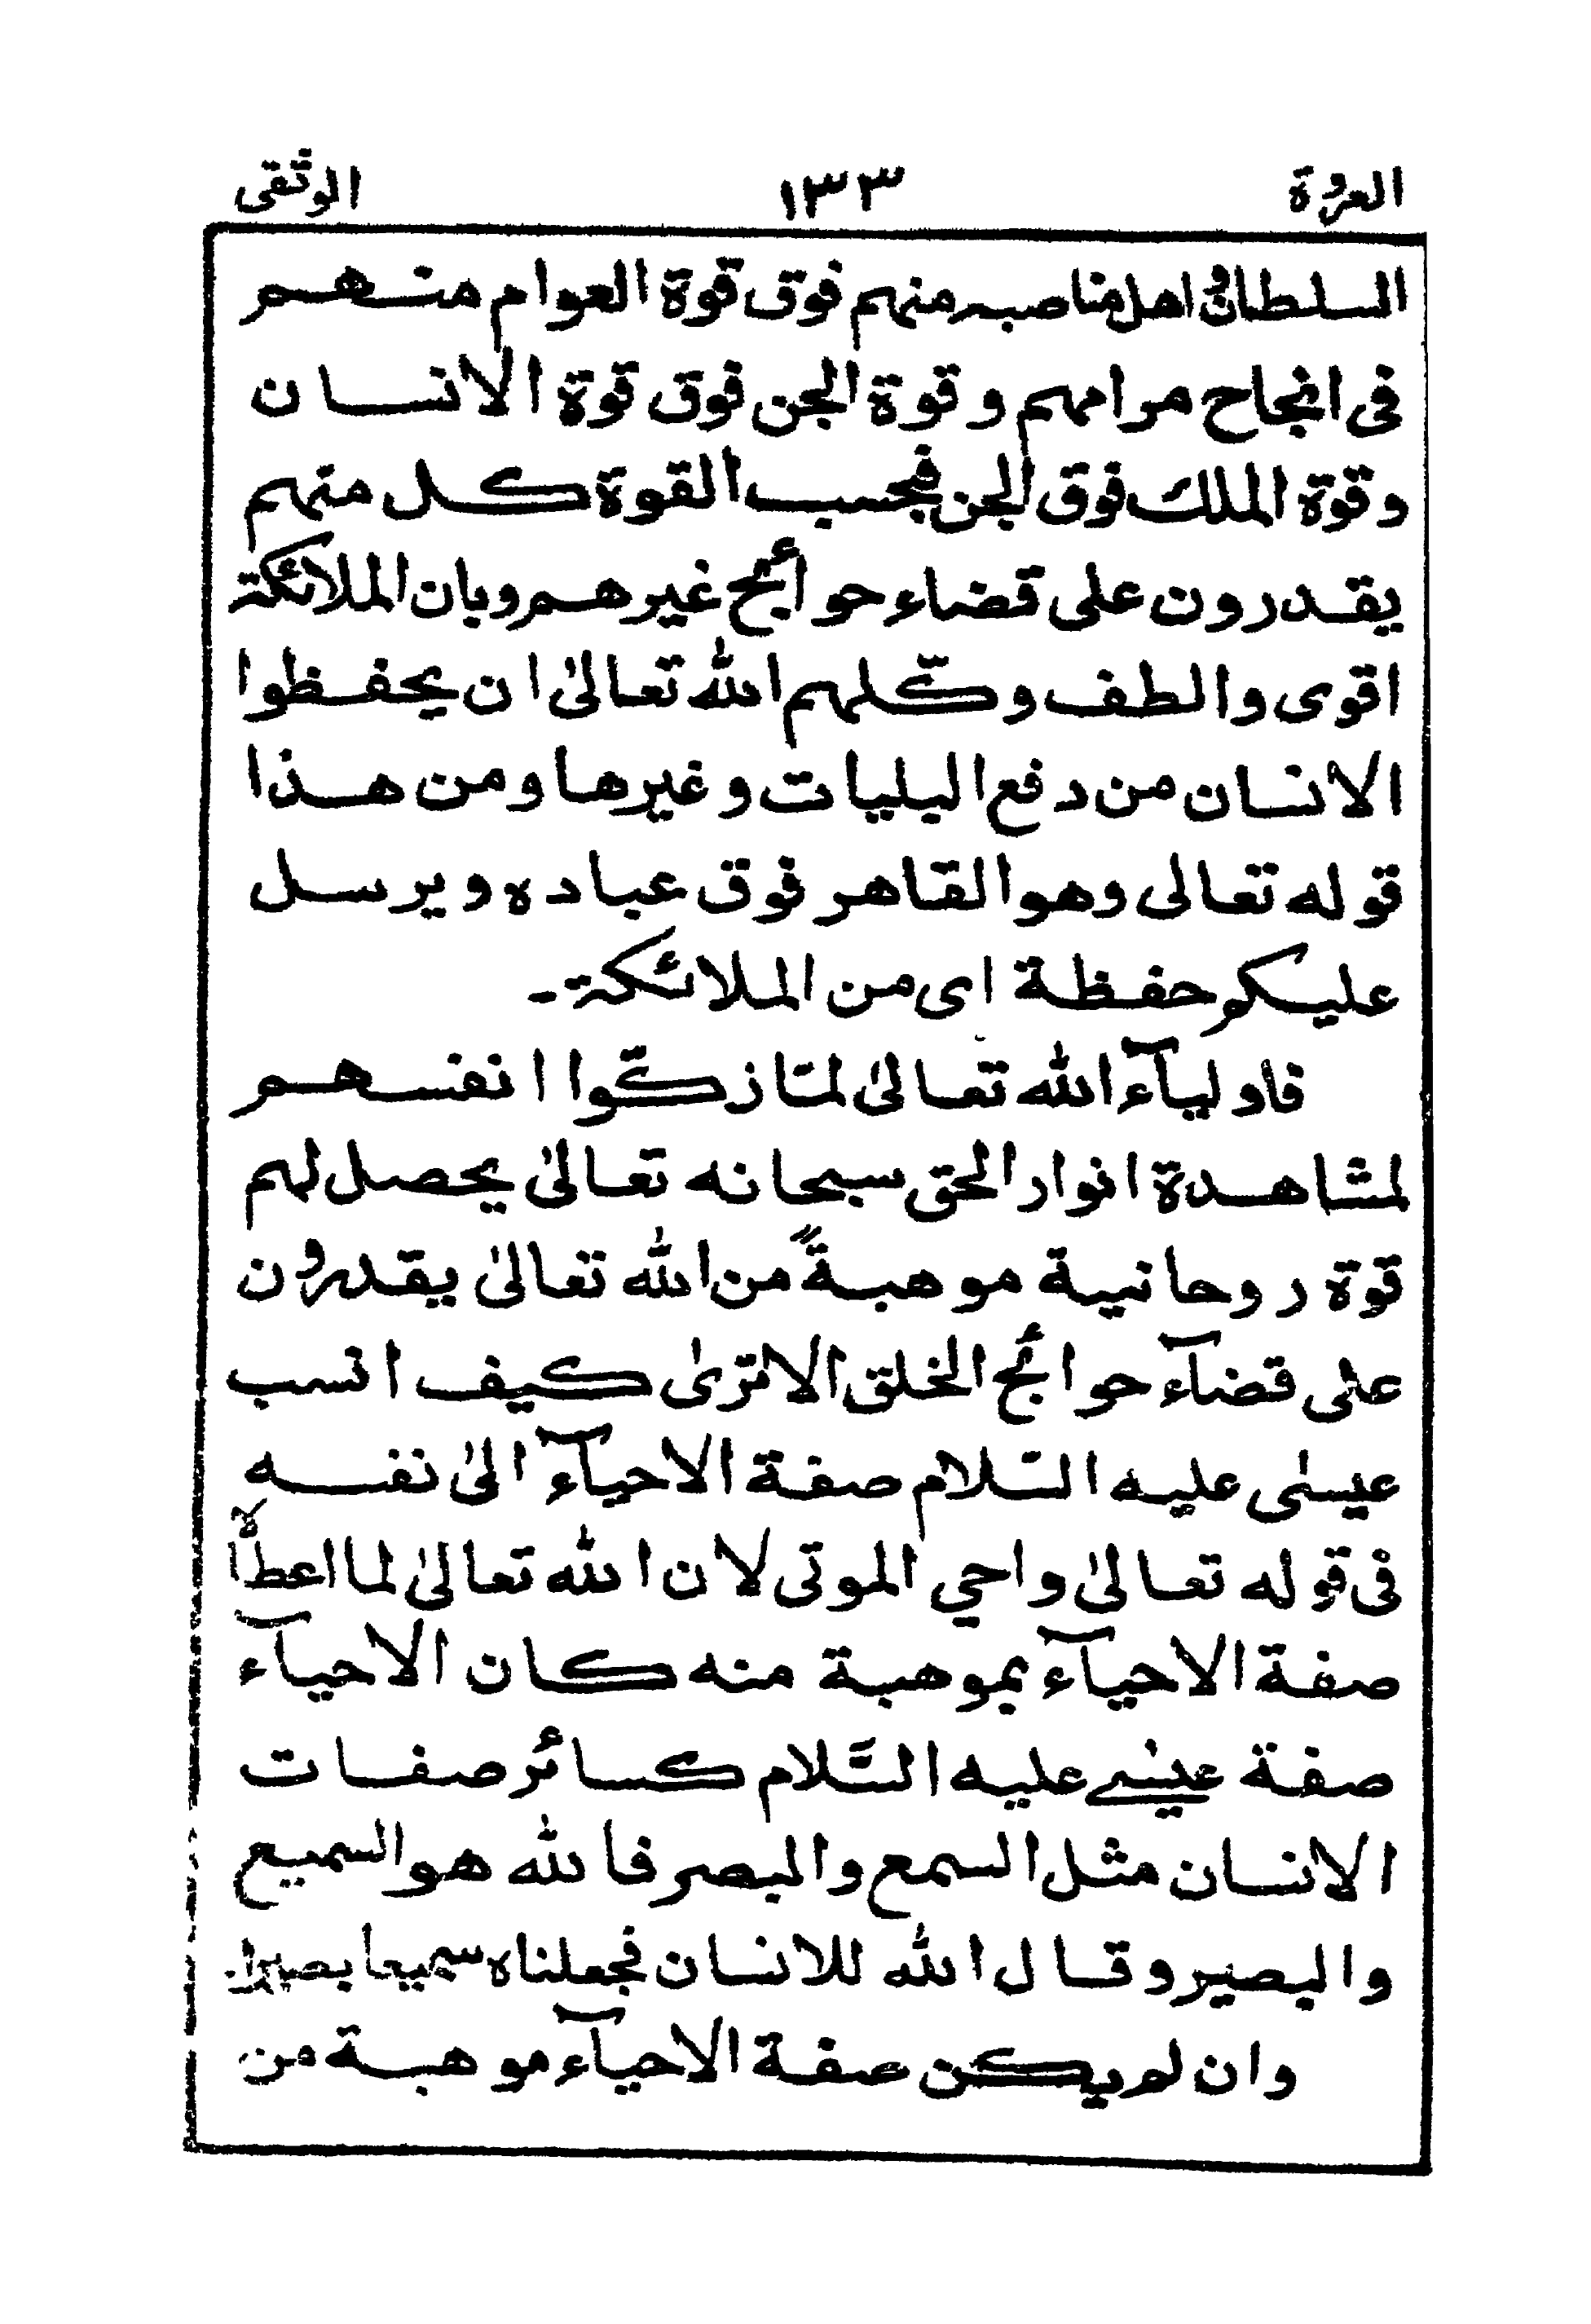 العروة ١٣٣ الوثقى
السلطان و اهل مناصبه منهم فوق قوة العوام منهم
فى انجاح مرامهم و قوة الجن فوق قوة الانسان
و قوة الملك فوق الجن فبحسب القوة كل منهم
يقدرون على قضاء حوائج غيرهم و بان الملائكة
اقوى والطف و كّلهم الله تعالىٰ ان يحفظوا
الانسان من دفع البليات و غيرها و من هذا
قوله تعالى وهو القاهر فوق عباده و يرسل
عليكم حفظة اى من الملائكة ـ
فاوليآء الله تعالىٰ لمّا زكّوا انفسهم
لمشاهدة انوار الحق سبحانه تعالىٰ يحصل لهم
قوة روحانية موهبةً من الله تعالىٰ يقدرون
على قضآء حوائج الخلق الا ترىٰ كيف انسب
عيسٰى عليه السّلام صفة الاحيآء الىٰ نفسه
فى قوله تعالىٰ و احي الموتى لان الله تعالىٰ لما اعطاه
صفة الاحيآء بموهبة منه كان الاحيآء
صفة عيسٰے عليه السَّلام كسائر صفات
الانسان مثل السمع والبصر فالله هو السميع
والبصير و قال الله للانسان فجعلناه سميعا بصيرا.
وان لم يكن صفة الاحيآء موهبة من